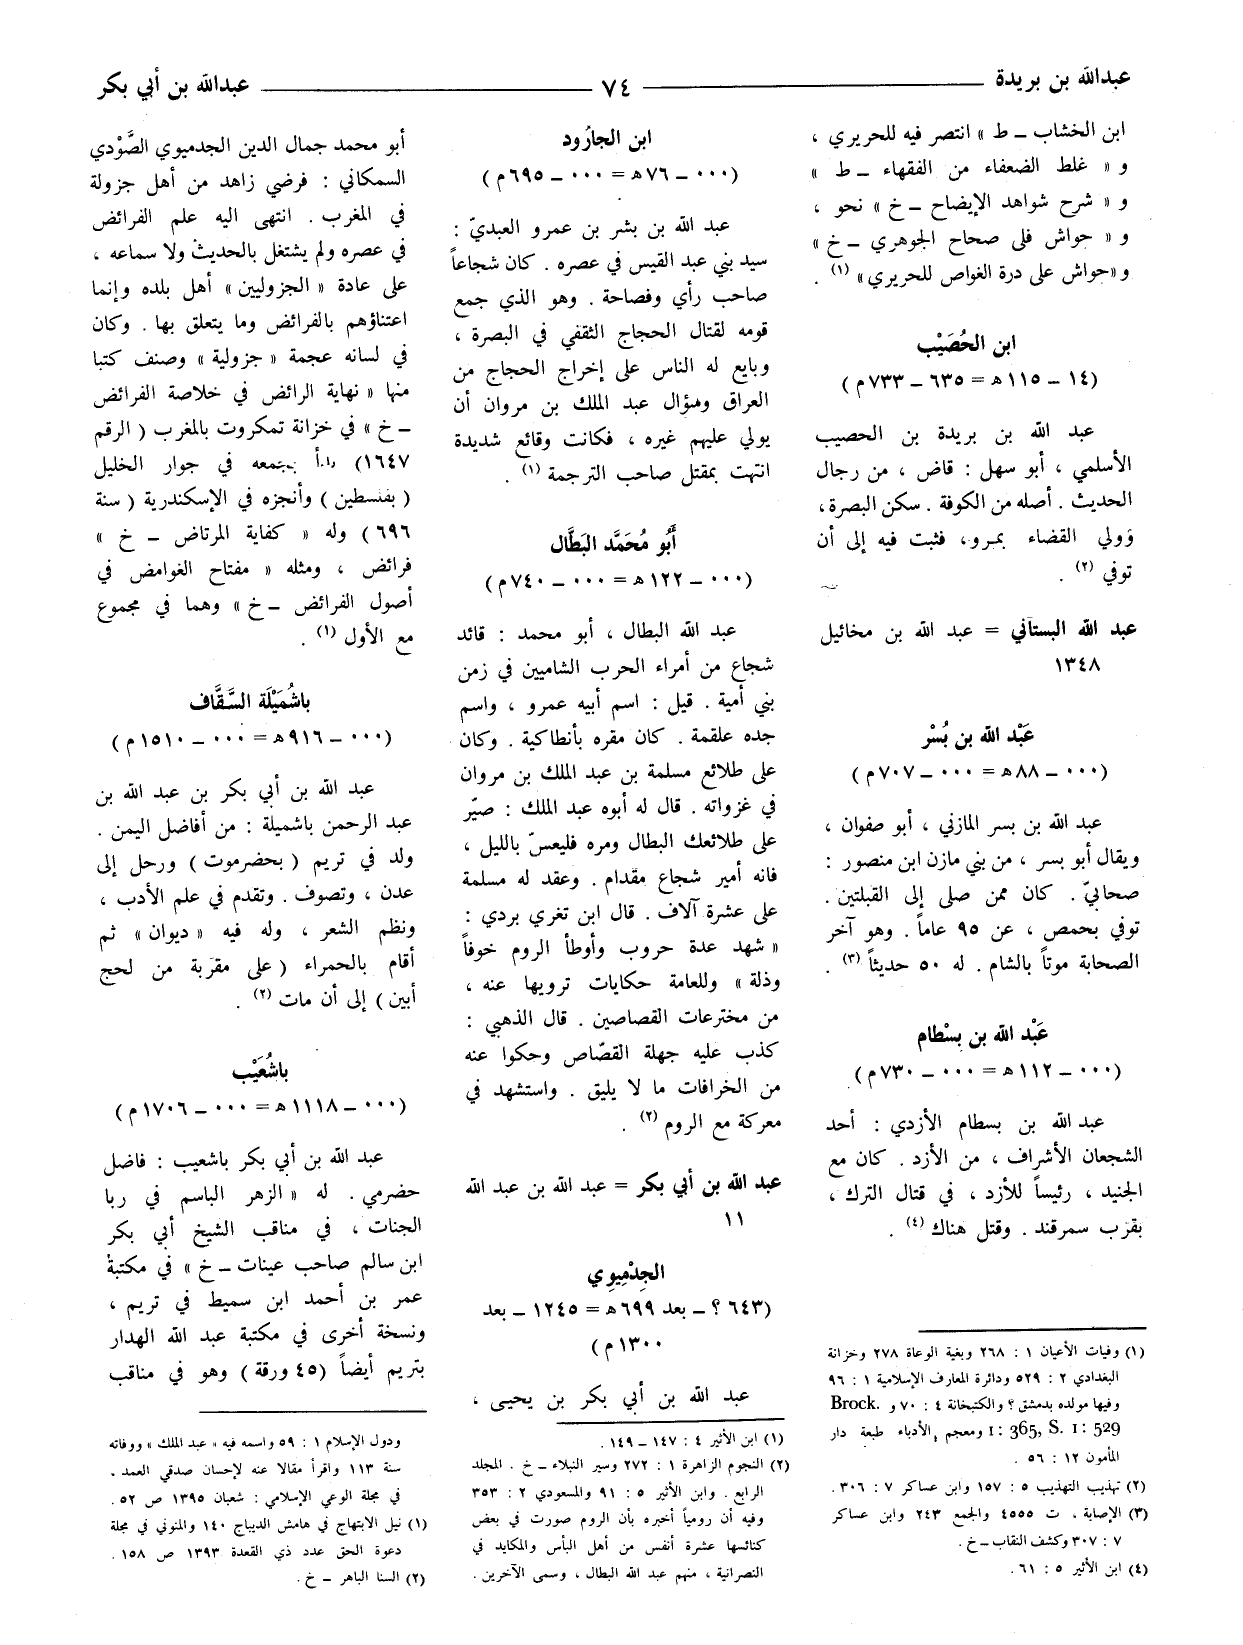 عبدالله بن بريدة
٧٤
عبدالله بن أبي بكر
ابن الخشاب ــ ط » انتصر فيه للحريري ،
و « غلط الضعفاء من الفقهاء ــ ط »
و « شرح شواهد الإيضاح ــ خ » نحو ،
و « حواش على صحاح الجوهري ــ خ »
و «حواش على درة الغواص للحريري» (١) .
ابن الحُصَيْب
(١٤ ــ ١١٥ هـ = ٦٣٥ ــ ٧٣٣ م)
عبد الله بن بريدة بن الحصيب
الأسلمي ، أبو سهل : قاض ، من رجال
الحديث . أصله من الكوفة . سكن البصرة ،
وولي القضاء بمرو، فثبت فيه إلى أن
توفي (٢) .
عبد الله البستاني = عبد الله بن مخائيل
١٣٤٨
عَبْد الله بن بُسْر
(٠٠٠ ــ ٨٨ هـ = ٠٠٠ ــ ٧٠٧ م)
عبد الله بن بسر المازني ، أبو صفوان ،
ويقال أبو بسر ، من بني مازن ابن منصور :
صحابيّ . كان ممن صلى إلى القبلتين .
توفي بحمص ، عن ٩٥ عاماً . وهو آخر
الصحابة موتاً بالشام . له ٥٠ حديثاً (٣) .
عَبْد الله بن بِسْطام
(٠٠٠ ــ ١١٢ هـ = ٠٠٠ ــ ٧٣٠ م)
عبد الله بن بسطام الأزدي : أحد
الشجعان الأشراف ، من الأزد . كان مع
الجنيد ، رئيساً للأزد ، في قتال الترك ،
بقرب سمرقند . وقتل هناك (٤) .
(١) وفيات الأعيان ١ : ٢٦٨ وبغية الوعاة ٢٧٨ وخزانة
البغدادي ٢ : ٥٢٩ ودائرة المعارف الإسلامية ١ : ٩٦
وفيها مولده بدمشق ؟ والكتبخانة ٤ : ٧٠ و Brock.
1: 365, S. 1: 529 ومعجم الأدباء طبعة دار
المأمون ١٢ : ٥٦ .
(٢) تهذيب التهذيب ٥ : ١٥٧ وابن عساكر ٧ : ٣٠٦ .
(٣) الإصابة ، ت ٤٥٥٥ والجمع ٢٤٣ وابن عساكر
٧ : ٣٠٧ وكشف النقاب ــ خ .
(٤) ابن الأثير ٥ : ٦١ .
ابن الجارُود
(٠٠٠ ــ ٧٦ هـ = ٠٠٠ ــ ٦٩٥ م)
عبد الله بن بشر بن عمرو العبديّ :
سيد بني عبد القيس في عصره . كان شجاعاً
صاحب رأي وفصاحة . وهو الذي جمع
قومه لقتال الحجاج الثقفي في البصرة ،
وبايع له الناس على إخراج الحجاج من
العراق وسؤال عبد الملك بن مروان أن
يولي عليهم غيره ، فكانت وقائع شديدة
انتهت بمقتل صاحب الترجمة (١) .
أَبُو مُحَمَّد البَطَّال
(٠٠٠ ــ ١٢٢ هـ = ٠٠٠ ــ ٧٤٠ م)
عبد الله البطال ، أبو محمد : قائد
شجاع من أمراء الحرب الشاميين في زمن
بني أمية . قيل : اسم أبيه عمرو ، واسم
جده علقمة . كان مقره بأنطاكية . وكان
على طلائع مسلمة بن عبد الملك بن مروان
في غزواته . قال له أبوه عبد الملك : صيّر
على طلائعك البطال ومره فليعسّ بالليل ،
فانه أمير شجاع مقدام . وعقد له مسلمة
على عشرة آلاف . قال ابن تغري بردي :
« شهد عدة حروب وأوطأ الروم خوفاً
وذلة » وللعامة حكايات ترويها عنه ،
من مخترعات القصاصين . قال الذهبي :
كذب عليه جهلة القصّاص وحكوا عنه
من الخرافات ما لا يليق . واستشهد في
معركة مع الروم (٢) .
عبد الله بن أبي بكر = عبد الله بن عبد الله
١١
الجِدْمِيوِي
(٦٤٣ ؟ ــ بعد ٦٩٩ هـ = ١٢٤٥ ــ بعد
١٣٠٠ م)
عبد الله بن أبي بكر بن يحيى ،
(١) ابن الأثير ٤ : ١٤٧ ــ ١٤٩ .
(٢) النجوم الزاهرة ١ : ٢٧٢ وسير النبلاء ــ خ . المجلد
الرابع . وابن الأثير ٥ : ٩١ والمسعودي ٢ : ٣٥٣
وفيه أن رومياً أخبره بأن الروم صورت في بعض
كنائسها عشرة أنفس من أهل البأس والمكايد في
النصرانية ، منهم عبد الله البطال ، وسمى الآخرين .
أبو محمد جمال الدين الجدميوي الصَّوْدي
السمكاني : فرضي زاهد من أهل جزولة
في المغرب . انتهى اليه علم الفرائض
في عصره ولم يشتغل بالحديث ولا سماعه ،
على عادة « الجزوليين » أهل بلده وإنما
اعتناؤهم بالفرائض وما يتعلق بها . وكان
في لسانه عجمة « جزولية » وصنف كتبا
منها « نهاية الرائض في خلاصة الفرائض
ــ خ » في خزانة تمكروت بالمغرب ( الرقم
١٦٤٧) بدأ بجمعه في جوار الخليل
( بفلسطين ) وأنجزه في الإسكندرية ( سنة
٦٩٦) وله « كفاية المرتاض ــ خ »
فرائض ، ومثله « مفتاح الغوامض في
أصول الفرائض ــ خ » وهما في مجموع
مع الأول (١) .
باشُمَيْلَة السَّقَّاف
(٠٠٠ ــ ٩١٦ هـ = ٠٠٠ ــ ١٥١٠ م)
عبد الله بن أبي بكر بن عبد الله بن
عبد الرحمن باشميلة : من أفاضل اليمن .
ولد في تريم ( بحضرموت ) ورحل إلى
عدن ، وتصوف . وتقدم في علم الأدب ،
ونظم الشعر ، وله فيه « ديوان » ثم
أقام بالحمراء ( على مقربة من لحج
أبين ) إلى أن مات (٢) .
باشُعَيْب
(٠٠٠ ــ ١١١٨ هـ = ٠٠٠ ــ ١٧٠٦ م)
عبد الله بن أبي بكر باشعيب : فاضل
حضرمي . له « الزهر الباسم في ربا
الجنات ، في مناقب الشيخ أبي بكر
ابن سالم صاحب عينات ــ خ » في مكتبة
عمر بن أحمد ابن سميط في تريم ،
ونسخة أخرى في مكتبة عبد الله الهدار
بتريم أيضاً (٤٥ ورقة) وهو في مناقب
ودول الإسلام ١ : ٥٩ واسمه فيه « عبد الملك » ووفاته
سنة ١١٣ واقرأ مقالا عنه لإحسان صدقي العمد .
في مجلة الوعي الإسلامي : شعبان ١٣٩٥ ص ٥٢ .
(١) نيل الابتهاج في هامش الديباج ١٤٠ والمنوني في مجلة
دعوة الحق عدد ذي القعدة ١٣٩٣ ص ١٥٨ .
(٢) السنا الباهر ــ خ .